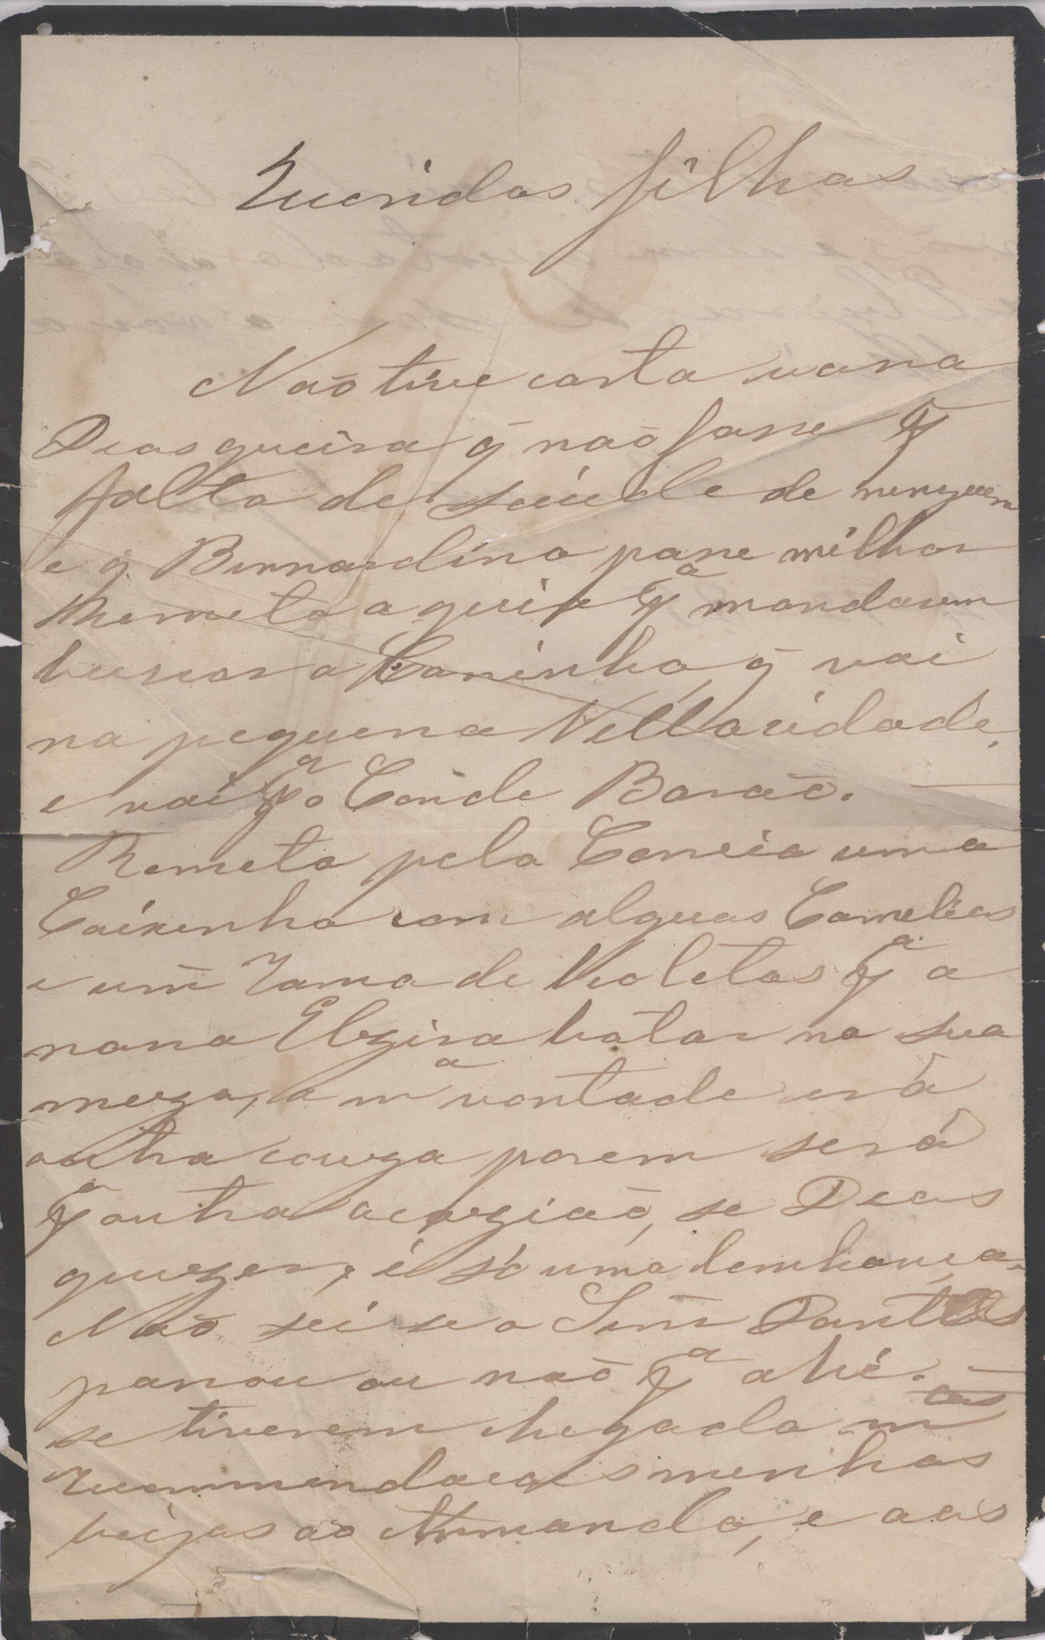 Queridas filhas
Não tive carta
Deos queira q̃ não fosse pr
falta de saúde de ninguem
e q̃ Bernardino passe milhor
Remeto a guia pª mandarem
buscar o Caninho, q̃ vai
na pequena Vellocidade,
e vai pª o Conde Barão.
Remeto pelo Correio uma
Caixinha com alguas Camelias
e um̃ ramo de Violetas pª a
mana Elvira botar na sua
meza, a mª vontade era
outra couza porem será
pª outra occazião, se Deos
quizer, é só uma lembrança.
Não sei se o Snr̃ Dantas
passou ou não pª ahi.
se tiverem chegado mtas
recommendações minhas
beijos ao Armando, e aos